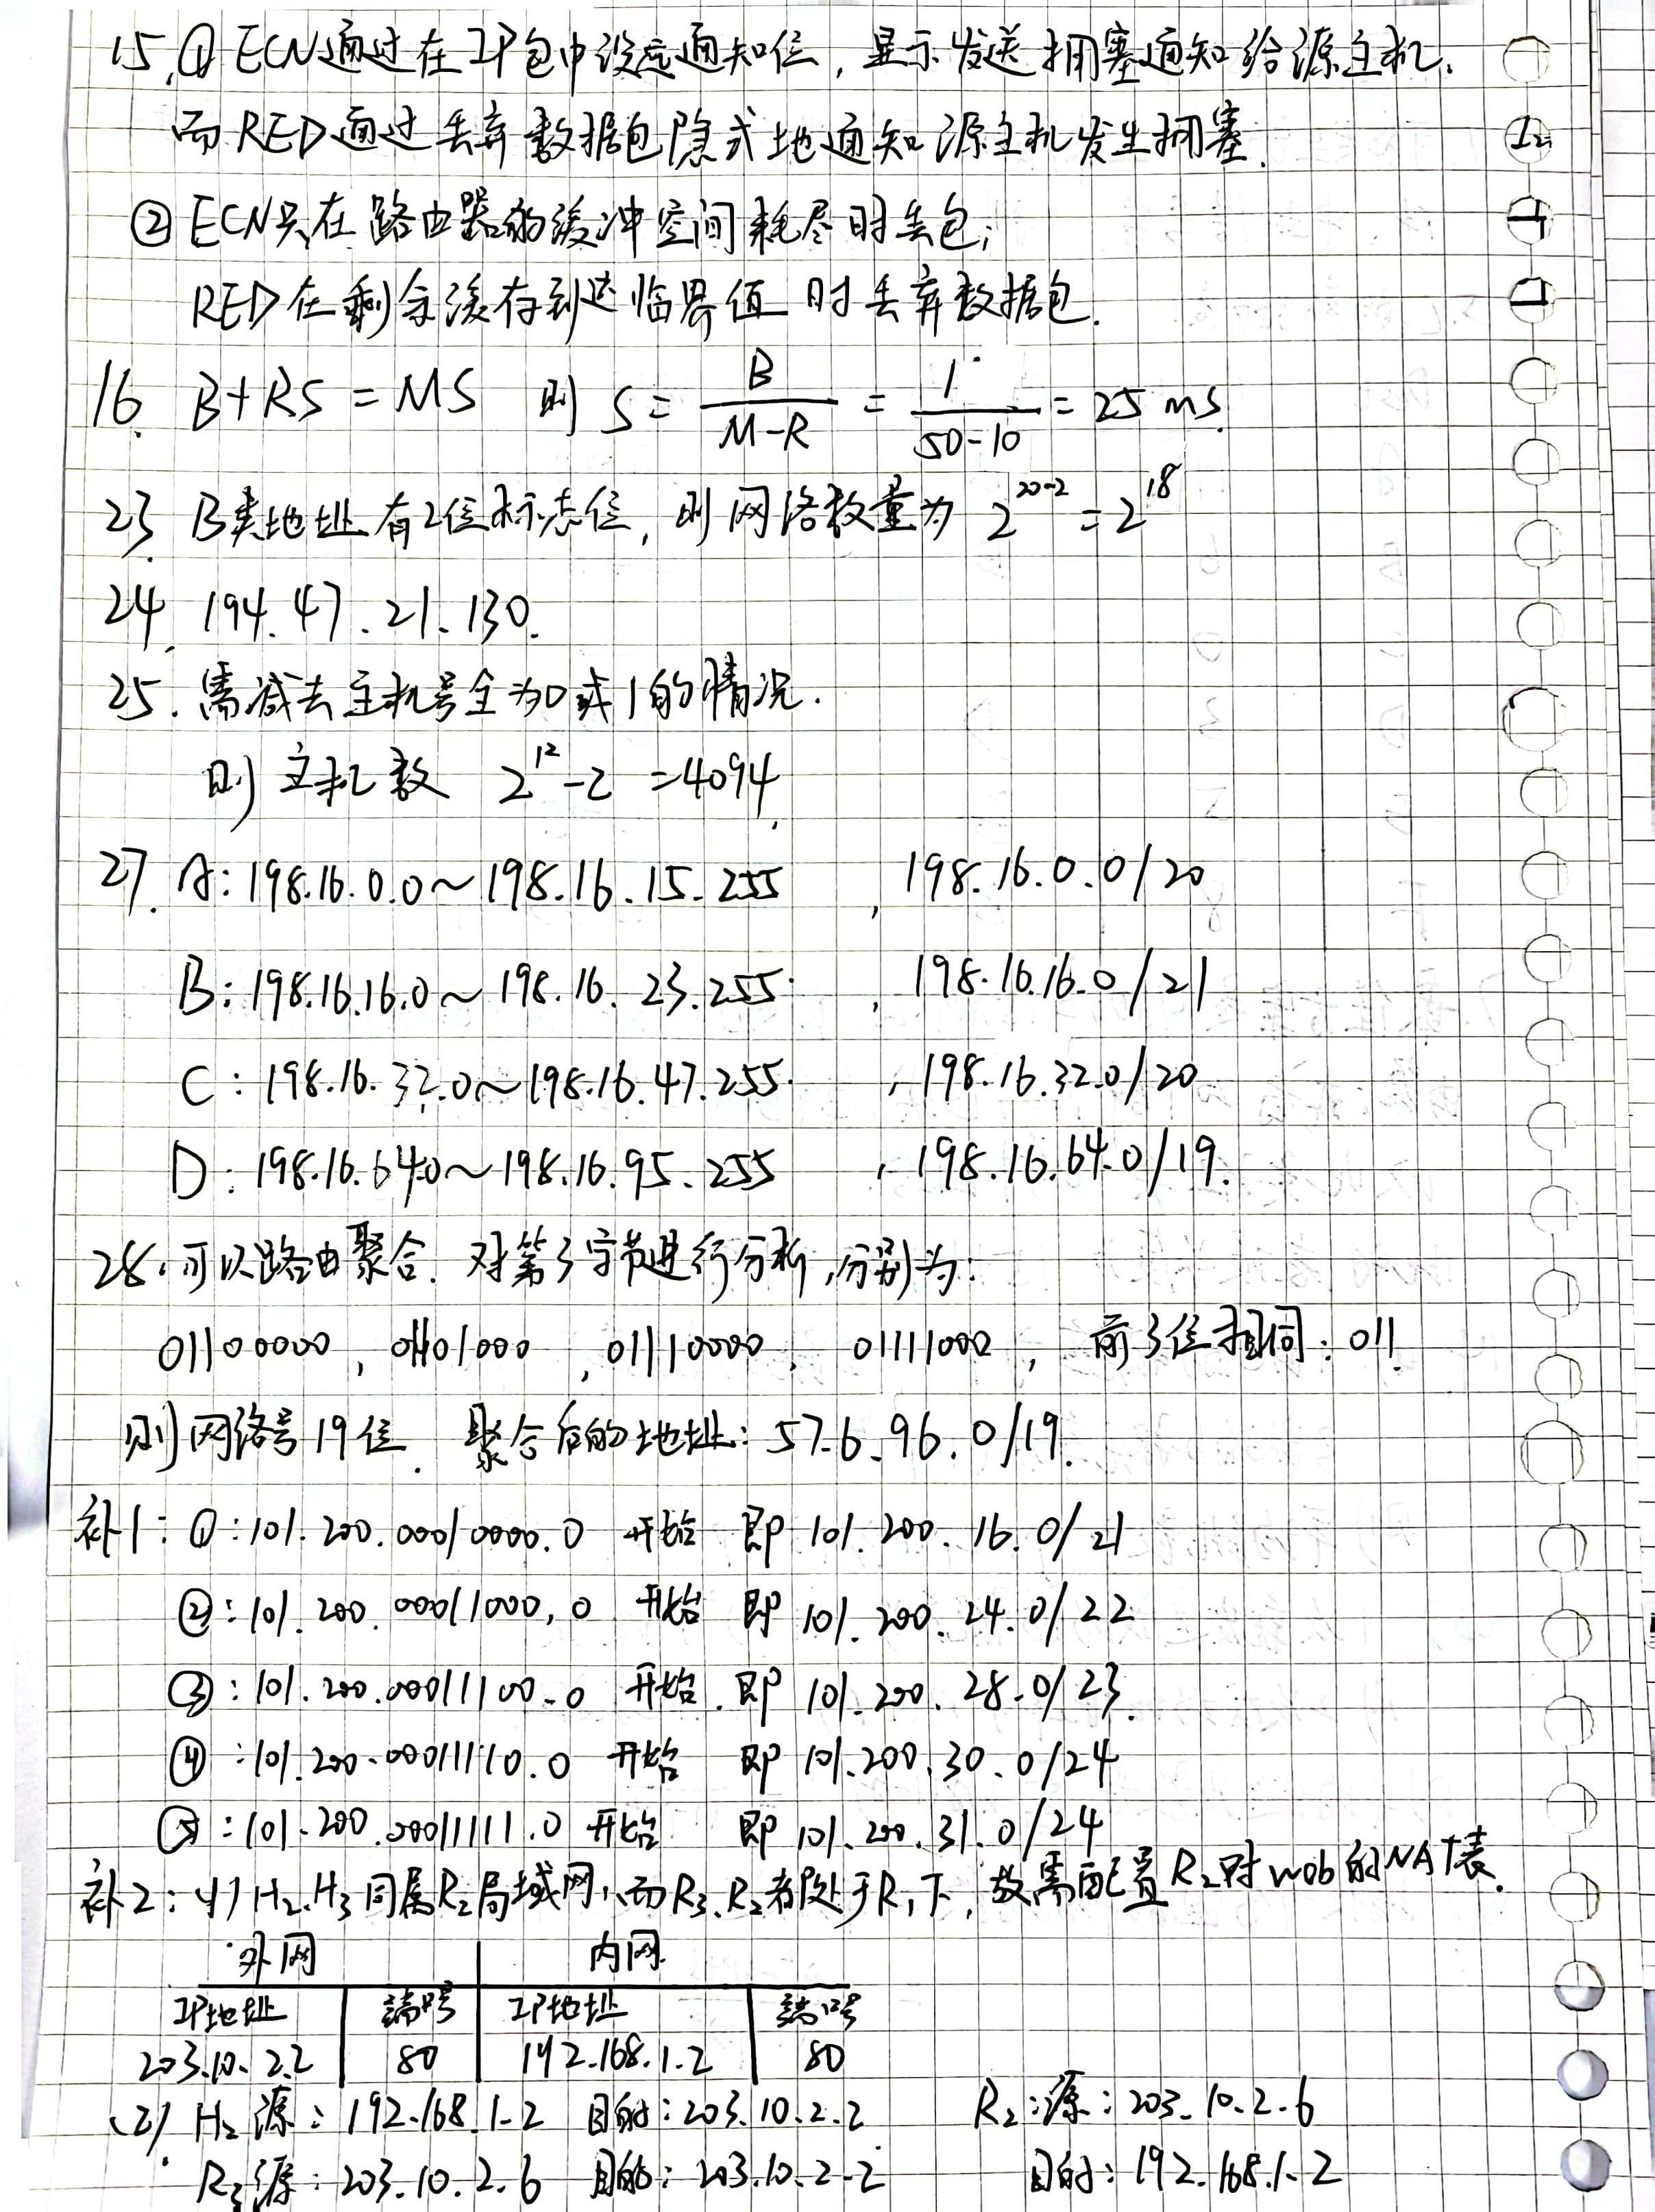 15.① ECN通过在IP包中设定通知位，显示发送拥塞通知给源主机.
而RED通过丢弃数据包隐式地通知源主机发生拥塞.
②ECN只在路由器的缓冲空间耗尽时丢包;
RED在剩余缓存到达临界值时丢弃数据包.
16. B+RS=MS 则 S = B/(M-R) = 1/(50-10) = 25 ms.
23. B类地址有2位标志位，则网络数量为 2^{20-2} = 2^{18}
24. 194.47.21.130.
25. 需减去主机号全为0或1的情况.
则主机数 2^{12}-2 =4094.
27. A: 198.16.0.0~198.16.15.255 , 198.16.0.0/20
B: 198.16.16.0~198.16.23.255. , 198.16.16.0/21
C: 198.16.32.0~198.16.47.255. , 198.16.32.0/20
D: 198.16.64.0~198.16.95.255 , 198.16.64.0/19.
28. 可以路由聚合. 对第3字节进行分析,分别为:
01100000, 01101000, 01110000, 01111000, 前3位相同: 011.
则网络号19位. 聚合后的地址: 57.6.96.0/19.
补1: ①: 101.200.00010000.0 开始 即 101.200.16.0/21
②: 101.200.00011000.0 开始 即 101.200.24.0/22
③: 101.200.00011100.0 开始. 即 101.200.28.0/23.
④: 101.200.00011110.0 开始 即 101.200.30.0/24
⑤: 101.200.00011111.0 开始 即 101.200.31.0/24
补2: (1) H2.H3同属R2局域网,而R3.R2都处于R1下,故需配置R2对web的NAT表.
外网 内网.
IP地址 端口号 IP地址 端口号
203.10.2.2 80 192.168.1.2 80
(2) H2 源: 192.168.1.2 目的: 203.10.2.2 R2:源: 203.10.2.6
R3源: 203.10.2.6 目的: 203.10.2.2 目的: 192.168.1.2